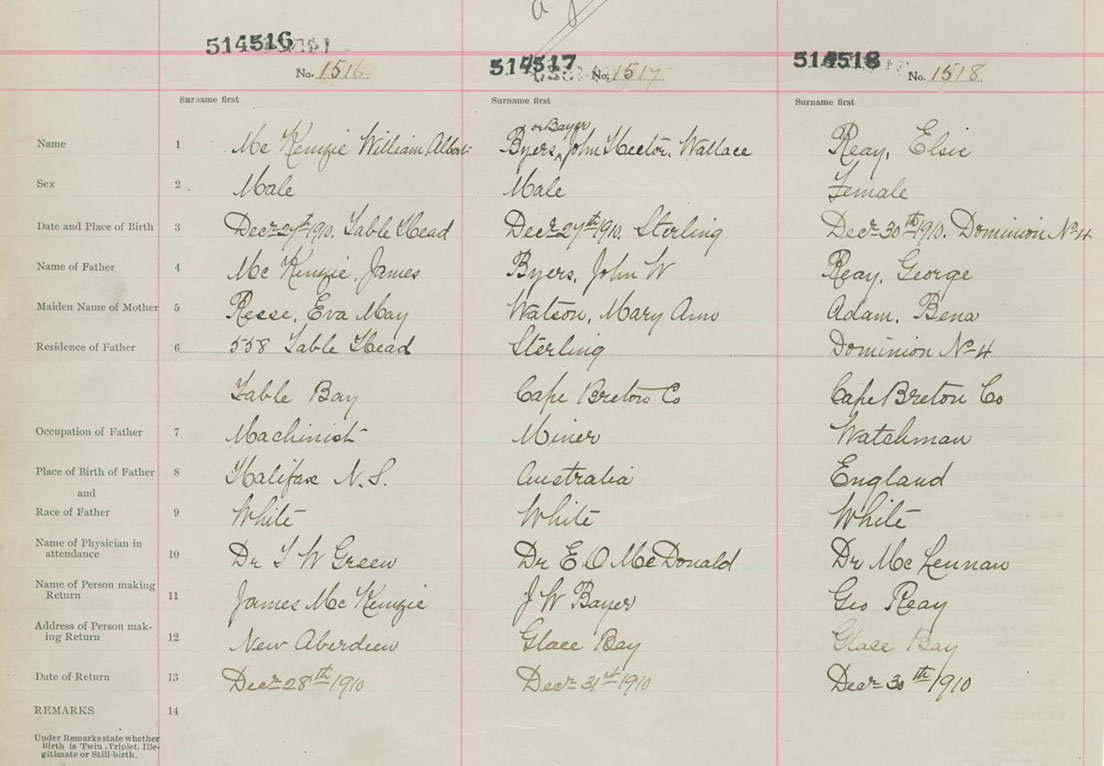 514516 514517 514518
No. 1516 No. 1517 No. 1518
Surname first Surname first Surname first
or Bayer
Name 1 Mc Kenzie William Albert Byers, John Hector Wallace Reay, Elsie
Sex 2 Male Male Female
Date and Place of Birth 3 Decr 27th 1910. Table Head Decr 27th 1910. Sterling Decr 30th 1910. Dominion No 4
Name of Father 4 Mc Kenzie, James Byers, John W Reay, George
Maiden Name of Mother 5 Resse, Eva May Watson, Mary Ann Adam, Bena
Residence of Father 6 558 Table Head Sterling Dominion No 4
Table Bay Cape Breton Co Cape Breton Co
Occupation of Father 7 Machinist Miner Watchman
Place of Birth of Father 8 Halifax N.S. Australia England
and
Race of Father 9 White White White
Name of Physician in
attendance 10 Dr T W Green Dr E O McDonald Dr Mc Lennan
Name of Person making
Return 11 James Mc Kenzie J W Bayer Geo Reay
Address of Person mak-
ing Return 12 New Aberdeen Glace Bay Glace Bay
Date of Return 13 Decr 28th 1910 Decr 31st 1910 Decr 30th 1910
REMARKS 14
Under Remarks state whether
Birth is Twin, Triplet, Ille-
gitimate or Still-birth.